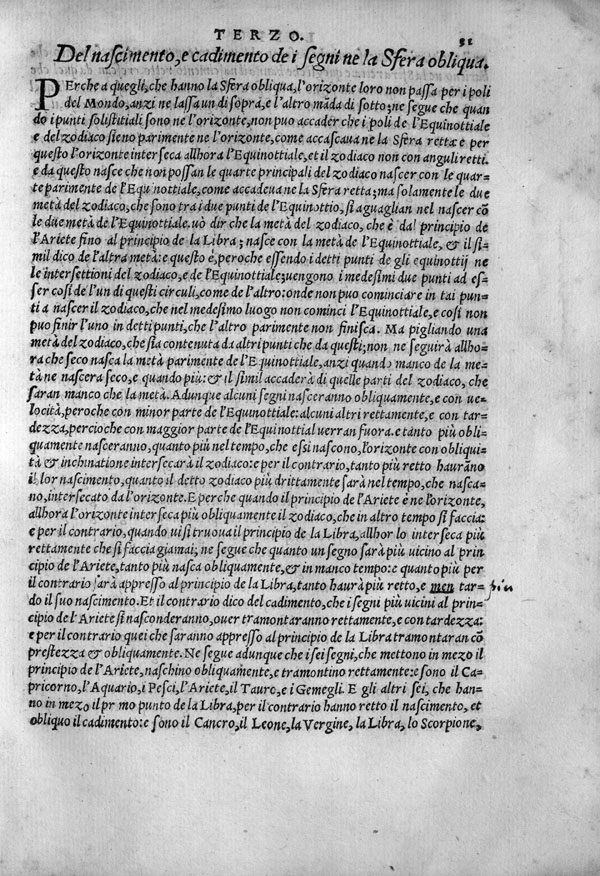 TERZO.
31
Del nascimento, e cadimento de i segni ne la Sfera obliqua.
PErche a quegli, che hanno la Sfera obliqua, l'orizonte loro non passa per i poli
del Mondo, anzi ne lassa un di sopra, e l'altro māda di sotto; ne segue che quan
do i punti solistitiali sono ne l'orizonte, non puo accader che i poli de l'Equinottiale
e del zodiaco sieno parimente ne l'orizonte, come accascaua ne la Sfera retta: e per
questo l'orizonte interseca allhora l'Equinottiale, et il zodiaco non con anguli retti.
e da questo nasce che non possan le quarte principali del zodiaco nascer con le quar=
te parimente de l'Equinottiale, come accadeua ne la Sfera retta; ma solamente le due
metà del zodiaco, che sono tra i due punti de l'Equinottio, si aguaglian nel nascer cō
le due metà de l'Equinottiale. uò dir che la metà del zodiaco, che è dal principio de
l'Ariete fino al principio de la Libra; nasce con la metà de l'Equinottiale, & il si=
mil dico de l'altra metà: e questo è, peroche essendo i detti punti de gli equinottij ne
le intersettioni del zodiaco, e de l'Equinottiale; uengono i medesimi due punti ad es=
ser cosi de l'un di questi circuli, come de l'altro: onde non puo cominciare in tai pun=
ti a nascer il zodiaco, che nel medesimo luogo non cominci l'Equinottiale, e cosi non
puo finir l'uno in detti punti, che l'altro parimente non finisca. Ma pigliando una
metà del zodiaco, che sia contenuta da altri punti che da questi; non ne seguirà allho=
ra che seco nasca la metà parimente de l'Equinottiale, anzi quando manco de la me=
tà ne nascera seco, e quando più: & il simil accaderà di quelle parti del zodiaco, che
saran manco che la metà. Adunque alcuni segni nasceranno obliquamente, e con ue=
locità, peroche con minor parte de l'Equinottiale: alcuni altri rettamente, e con tar=
dezza, percioche con maggior parte de l'Equinottial uerran fuora. e tanto più obli=
quamente nasceranno, quanto più nel tempo, che essi nascono, l'orizonte con obliqui=
tà & inchinatione intersecarà il zodiaco: e per il contrario, tanto più retto haurāno
il lor nascimento, quanto il detto zodiaco più drittamente sarà nel tempo, che nasca=
no, intersecato da l'orizonte. E perche quando il principio de l'Ariete è ne l'orizonte,
allhora l'orizonte interseca più obliquamente il zodiaco, che in altro tempo si faccia:
e per il contrario, quando ui si truoua il principio de la Libra, allhor lo interseca più
rettamente che si faccia giamai; ne segue che quanto un segno sarà più uicino al prin
cipio de l'Ariete, tanto più nasca obliquamente, & in manco tempo: e quanto più per
il contrario sarà appresso al principio de la Libra, tanto haurà più retto, e men tar=
do il suo nascimento. Et il contrario dico del cadimento, che i segni più uicini al prin=
cipio de l'Ariete si nasconderanno, ouer tramontaranno rettamente, e con tardezza:
e per il contrario quei che saranno appresso al principio de la Libra tramontaran cō
prestezza & obliquamente. Ne segue adunque che i sei segni, che mettono in mezo il
principio de l'Ariete, naschino obliquamente, e tramontino rettamente: e sono il Ca=
pricorno, l'Aquario, i Pesci, l'Ariete, il Tauro, e i Gemegli. E gli altri sei, che han=
no in mezo il pr mo punto de la Libra, per il contrario hanno retto il nascimento, et
obliquo il cadimento: e sono il Cancro, il Leone, la Vergine, la Libra, lo Scorpione,